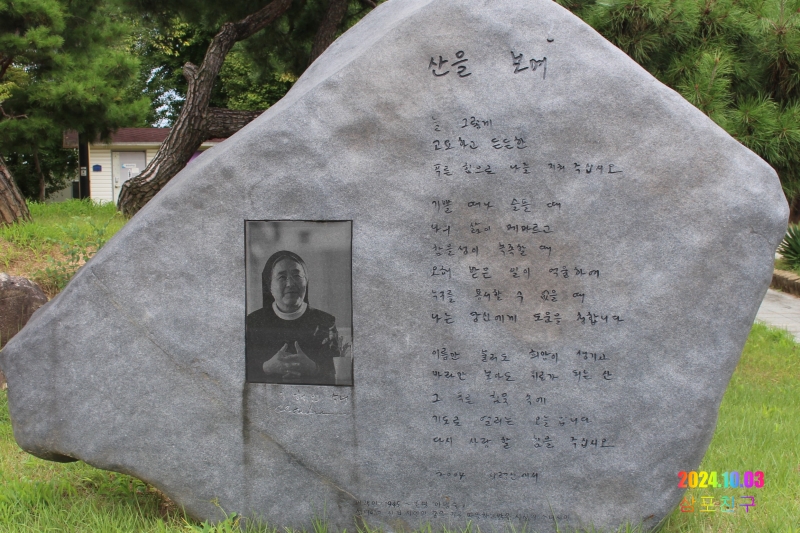 산을 보며
늘 그렇게
고요하고 든든한
푸른 힘으로 나를 지켜 주십시오
기쁠 때나 슬플 때
나의 삶이 메마르고
참을성이 부족할 때
오해 받은 일이 억울하여
누구를 용서할 수 없을 때
나는 당신에게 도움을 청합니다
이름만 불러도 희망이 생기고
바라만 보아도 위로가 되는 산
그 푸른 침묵 속에
기도로 열리는 오늘입니다
다시 사랑할 힘을 주십시오
수녀
2024.10.03
삼포친구